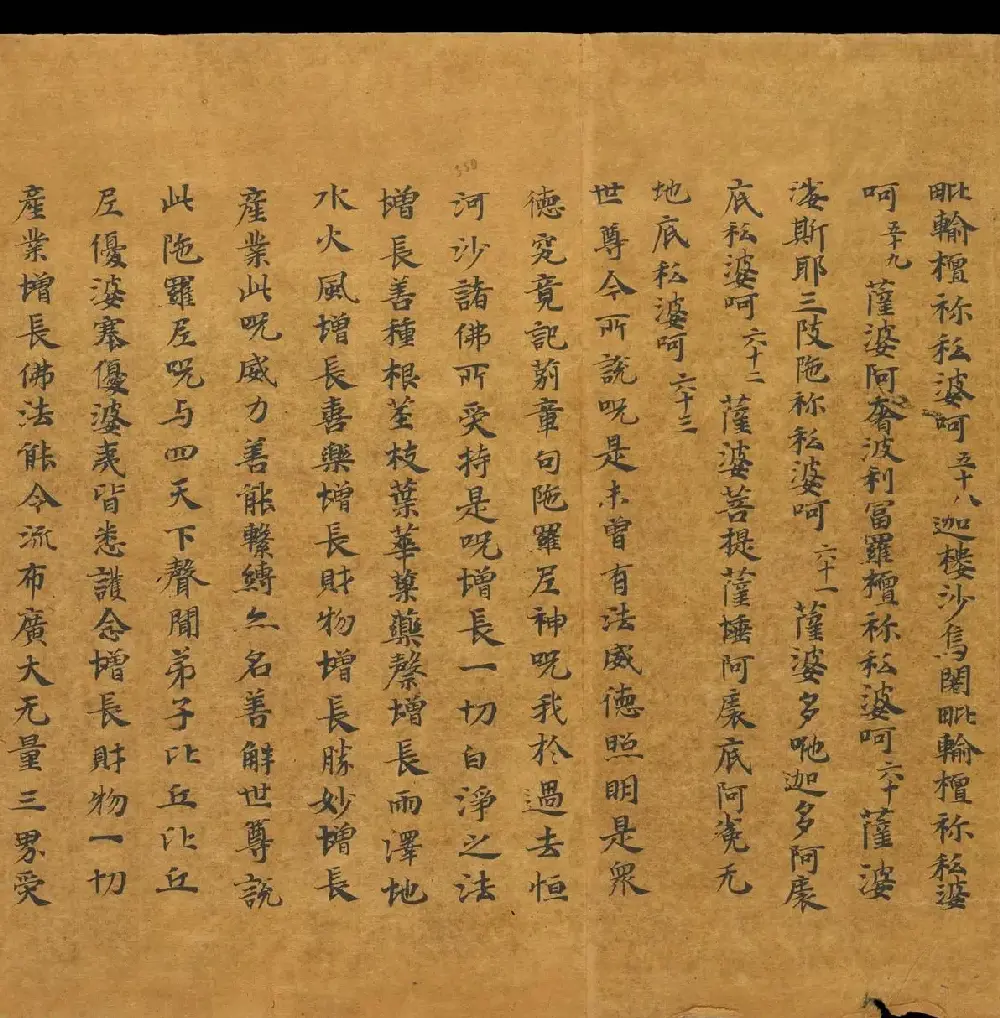 毗輸檀祢莎婆呵 五十八 迦樓沙烏闍毗輸檀祢莎婆
呵 五十九 薩婆阿奢波利富羅檀祢莎婆呵 六十 薩婆
娑斯耶三陂陁祢莎婆呵 六十一 薩婆多咃迦多阿廗
底莎婆呵 六十二 薩婆菩提薩埵阿廗底阿㝹无
地底莎婆呵 六十三
世尊今所說呪是未曾有法威德照明是衆
德究竟記莂章句陁羅尼神呪我於過去恒
河沙諸佛所受持是呪增長一切白淨之法
增長善種根莖枝葉華菓藥㲈增長雨澤地
水火風增長喜樂增長財物增長勝妙增長
產業此呪威力善能繫縛亦名善解世尊說
此陁羅尼呪与四天下聲聞弟子比丘比丘
尼優婆塞優婆夷皆悉護念增長財物一切
產業增長佛法能令流布廣大无量三界受
550